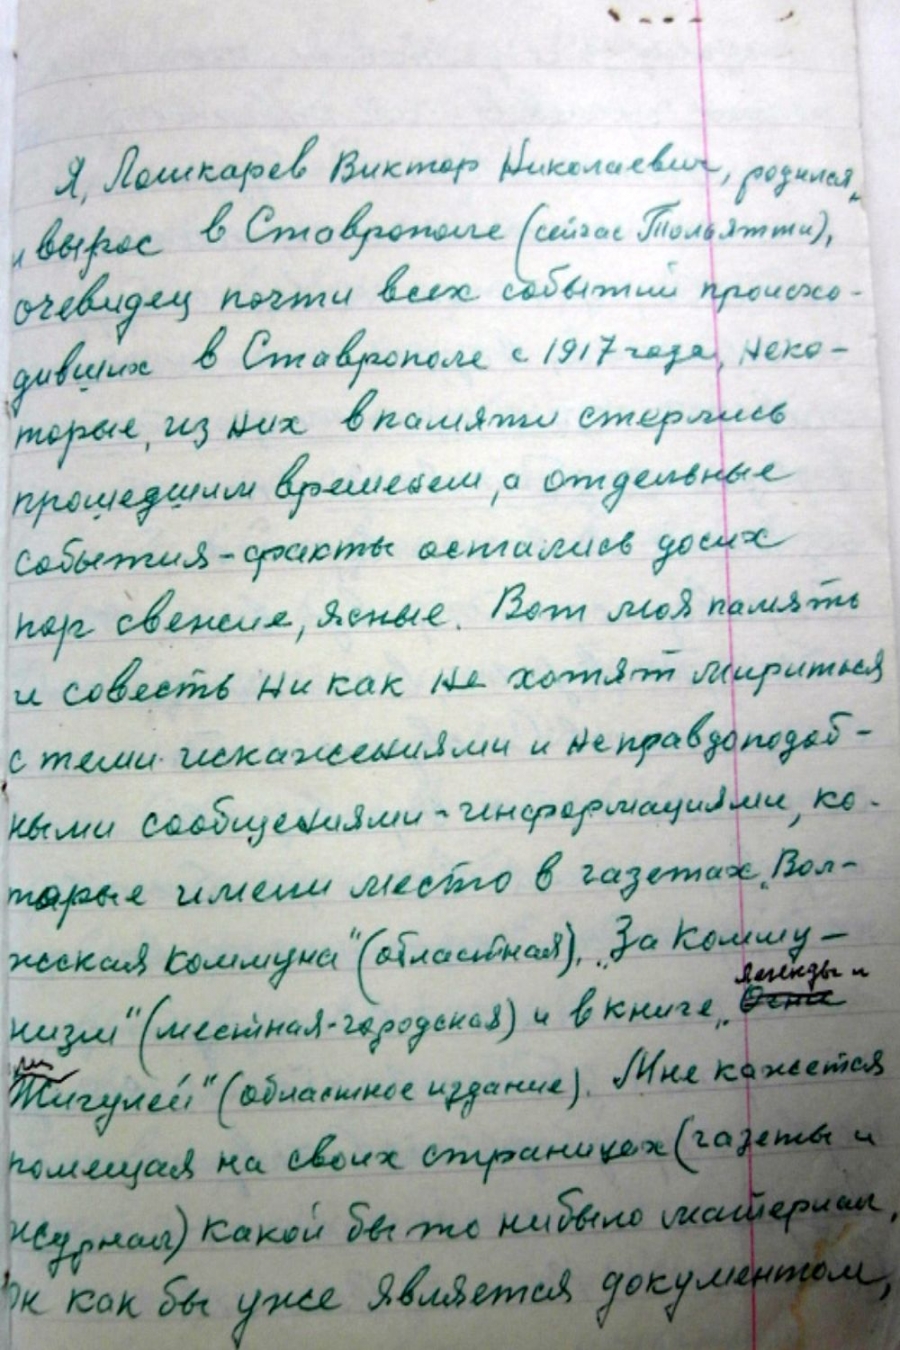 Я, Лошкарев Виктор Николаевич, родился
и вырос в Ставрополе (сейчас Тольятти),
очевидец почти всех событий происхо-
дивших в Ставрополе с 1917 года, неко-
торые, из них в памяти стерлись
прошедшим временем, а отдельные
события-факты остались досих
пор свежие, ясные. Вот моя память
и совесть ни как не хотят мириться
с теми искажениями и неправдоподоб-
ными сообщениями-информациями, ко-
торые имели место в газетах „Вол-
жская коммуна" (областная), „За Комму-
низм" (местная-городская) и в книге „Легенды и
Жигулей" (областное издание). Мне кажется
помещая на своих страницах (газеты и
журнал) какой бы то нибыло материал,
он как бы уже является документом,